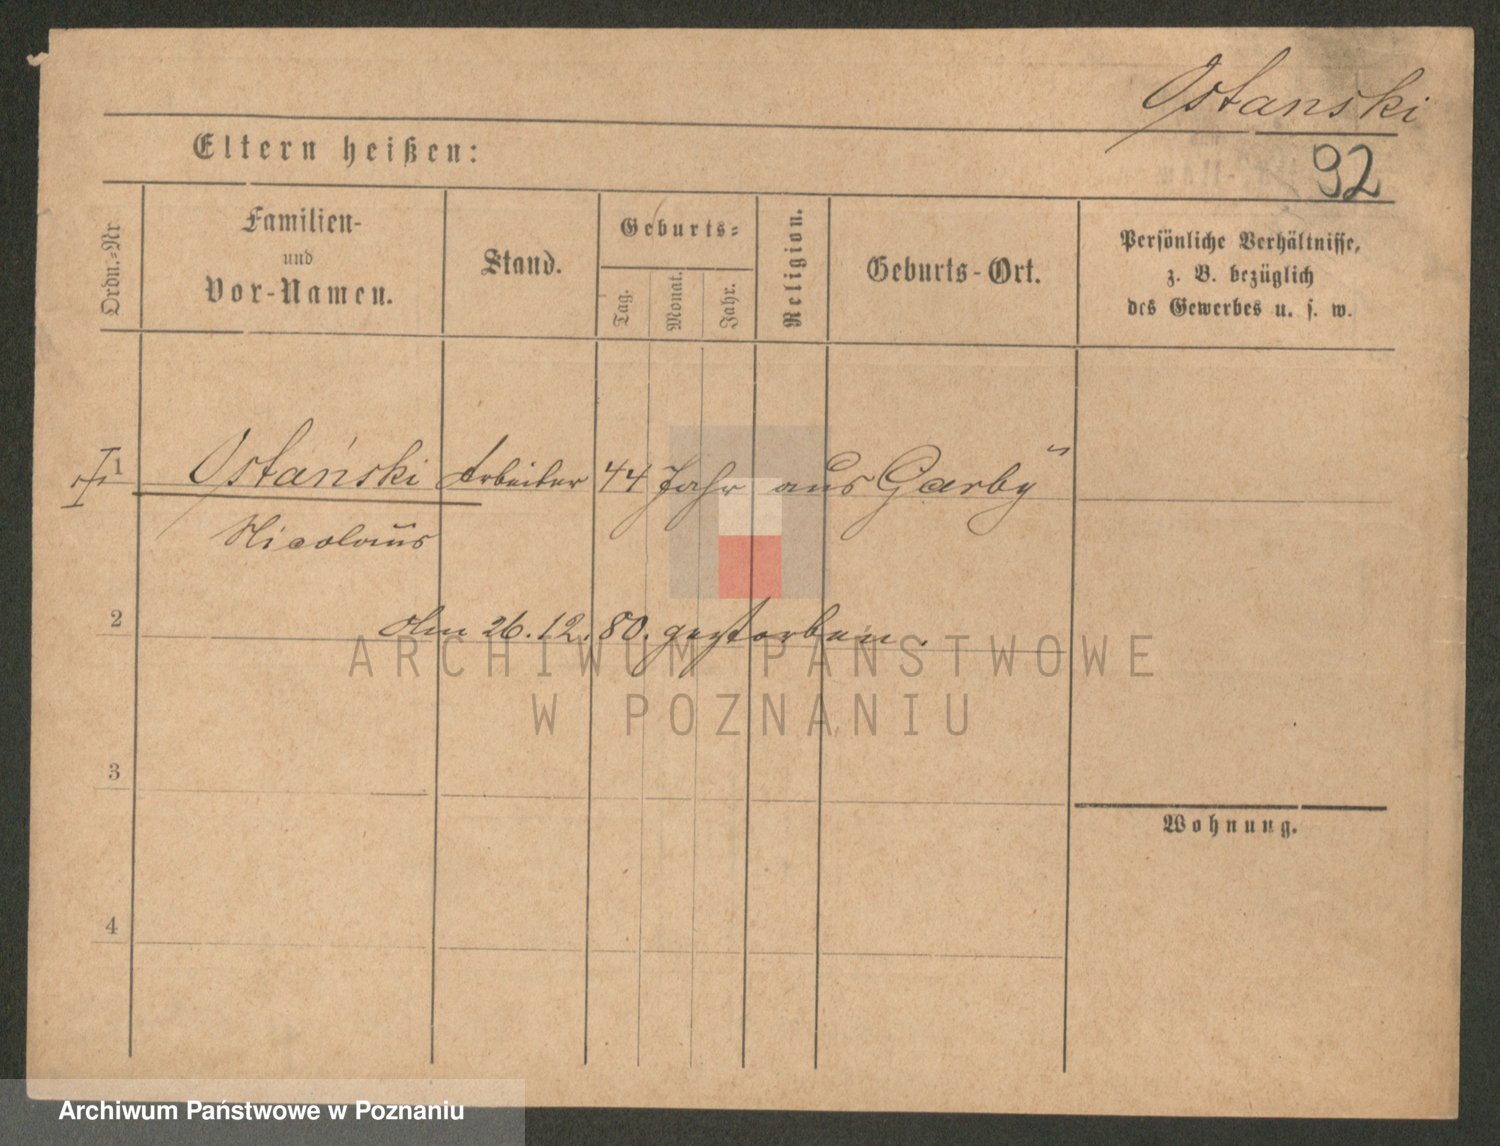 Ostanski
92
Eltern heißen:
Ordn.-Nr
Familien-
und
Vor-Namen.
Stand.
Geburts-
Tag.
Monat.
Jahr.
Religion.
Geburts-Ort.
Persönliche Verhältnisse,
z. B. bezüglich
des Gewerbes u. s. w.
1 Ostański Arbeiter 44 Jahr aus Garby
Nicolaus
2
am 26.12.80. gestorben.
3
4
Wohnung.
ARCHIWUM PAŃSTWOWE
W POZNANIU
Archiwum Państwowe w Poznaniu